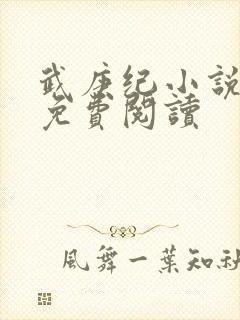 武庚纪小說
免費閱讀
風舞一葉知秋